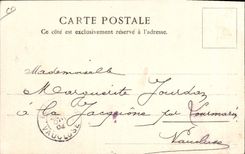 CARTE POSTALE
Ce côté est exclusivement réservé à l'adresse.
Mademoiselle
Marguerite Jourdan
à la Jacquière par Lourmarin
Vaucluse
VAUCLUSE